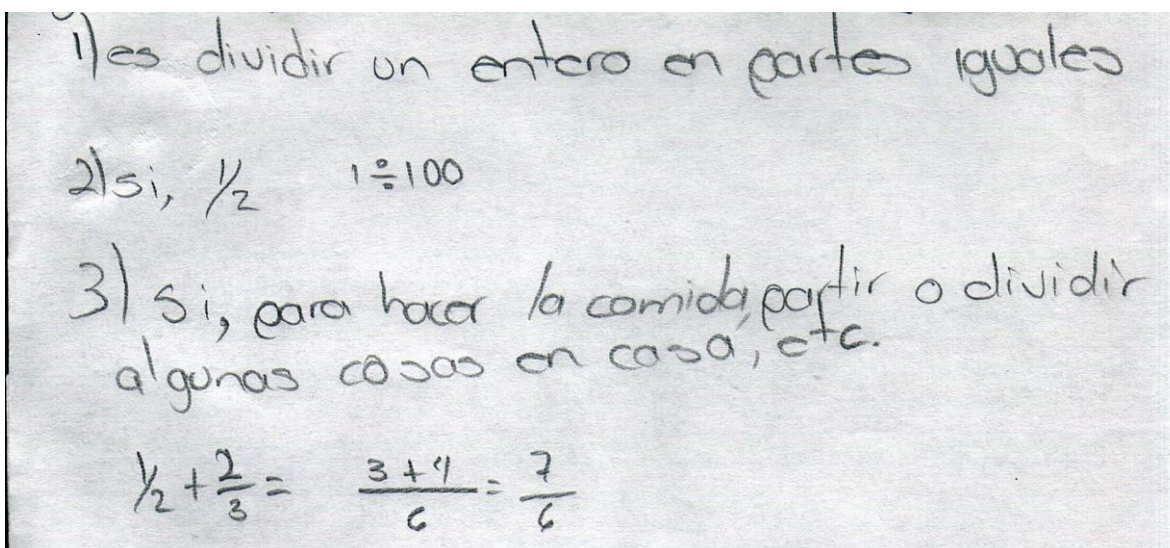 1) es dividir un entero en partes iguales
2) si, 1/2 1÷100
3) si, para hacer la comida, partir o dividir
algunas cosas en casa, etc.
1/2 + 2/3 = 3+4/6 = 7/6